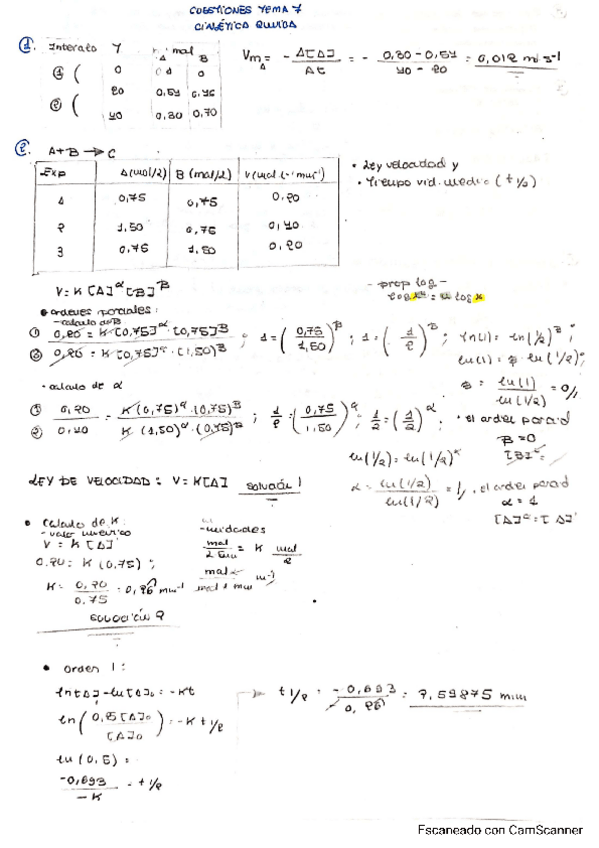 CUESTIONES TEMA 7
CINÉTICA QUIMICA
1. Intervalo Y mol
A B
① ( 0 0
② ( 20 0,54
40 0,30 0,70
Vm = - Δ[A] / Δt = - 0,30 - 0,54 / 40 - 20 = 0,012 m s-1
2. A+B → C
Exp A (mol/L) B (mol/L) V (mol L-1 min-1)
1 0,75 0,75 0,20
2 1,50 0,75 0,40
3 0,75 1,50 0,20
• Ley velocidad y
• Tiempo vid. medio (t 1/2)
V = K [A]α [B]β
• ordenes parciales:
- calculo de β
① 0,20 = K · [0,75]α · [0,75]β
③ 0,20 = K · [0,75]α · (1,50)β ; 1 = (0,75 / 1,50)β ; 1 = (1 / 2)β ; ln(1) = ln(1/2)β ;
- prop log -
log = log x
ln(1) = β · ln(1/2) ;
β = ln(1) / ln(1/2) = 0 //
• el orden parcial
β = 0
[B]
• calculo de α
① 0,20 / ② 0,40 = K (0,75)α · (0,75)β / K (1,50)α · (0,75)β ; 1/2 = (0,75 / 1,50)α ; 1/2 = (1/2)α ;
ln(1/2) = ln(1/2)α
α = ln(1/2) / ln(1/2) = 1 // , el orden parcial
α = 1
[A]α = [A]1
LEY DE VELOCIDAD : V = K[A] solución 1
• calculo de K
- valor numerico
V = K [A]1
0.20 = K (0,75) ;
K = 0,20 / 0.75 = 0,26 min-1
solución 2
- unidades
mol / L min = K mol / L
mol L / mol L min min-1
• orden 1 :
ln[A] - ln[A]0 = -Kt
ln(0,5[A]0 / [A]0) = -K t 1/2
ln (0,5) =
-0,693 / -K = t 1/2
→ t 1/2 = -0,693 / 0,26 = 2,59875 min
Escaneado con CamScanner